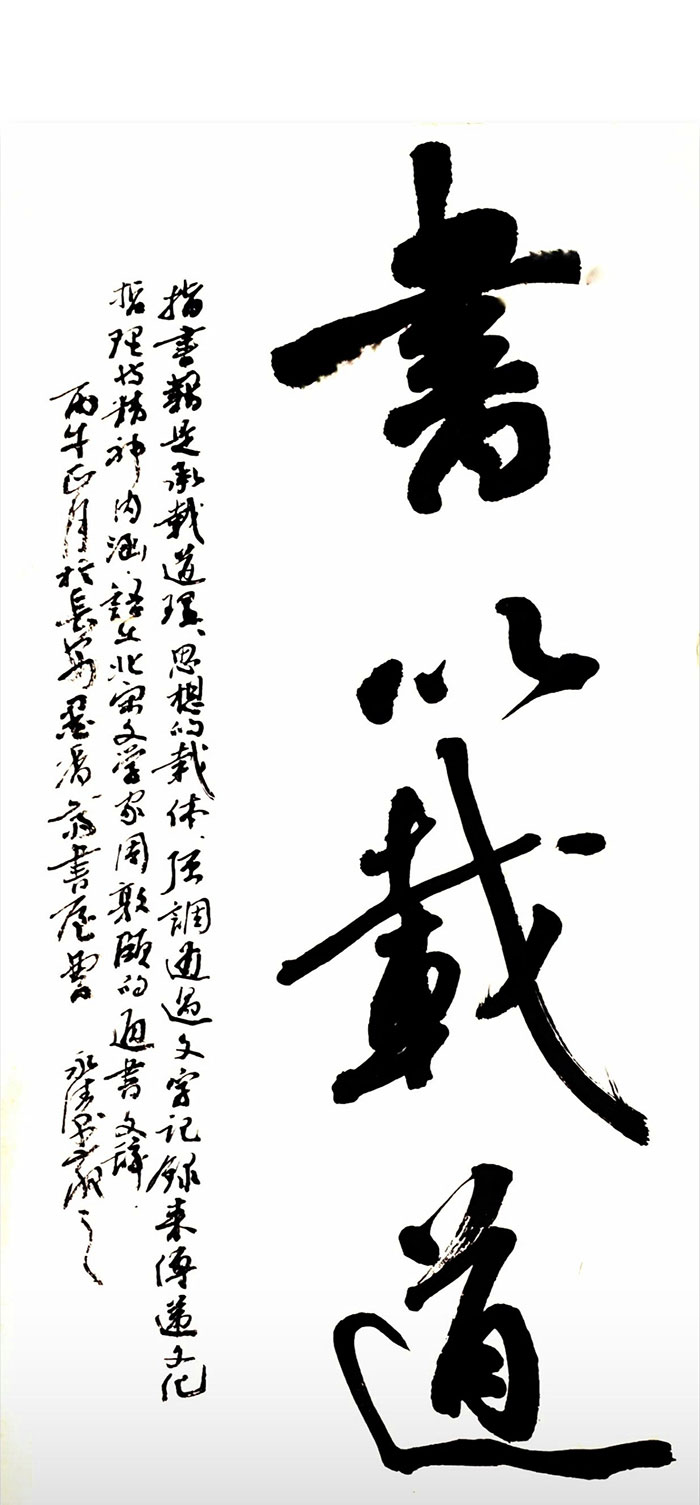 書以載道
指書籍是承載道理、思想的載体、强調通過文字記録来傳遞文化
哲理与精神内涵.語出北宋文学家周敦頤的通書文辞.
丙午正月於長安墨濤齋書屋雲